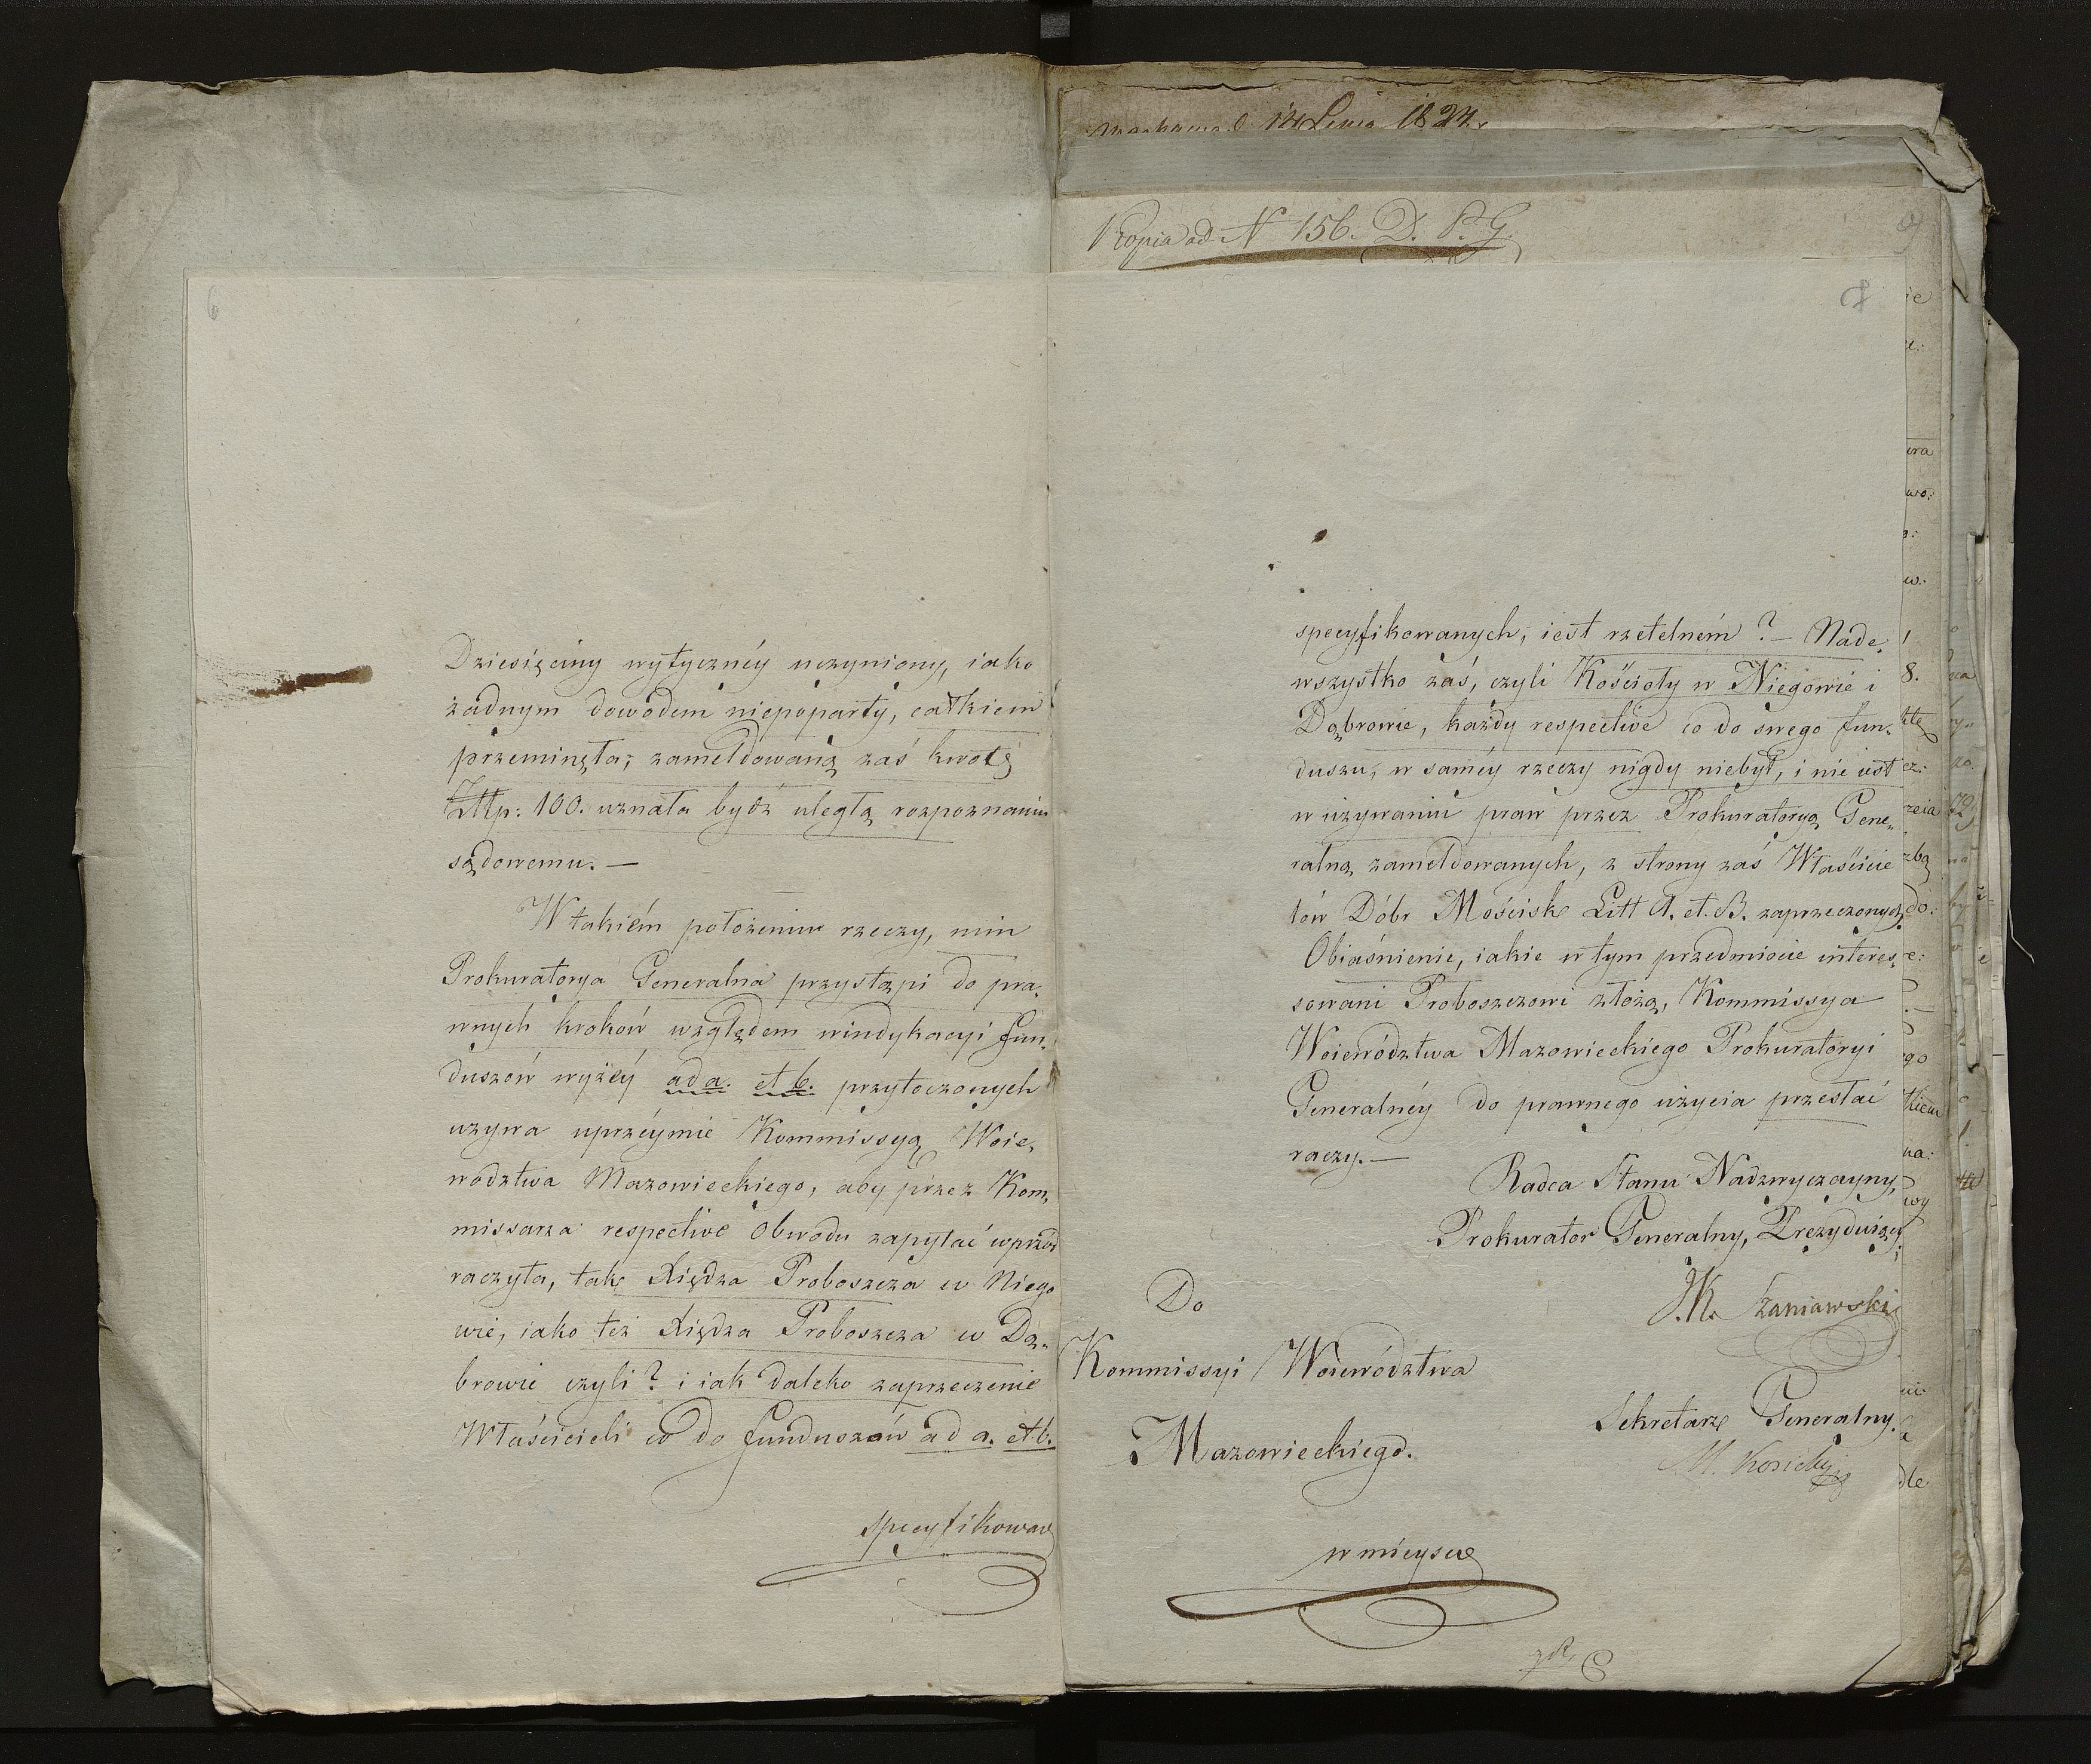 6
Dziesięciny wytycznéy uczyniony, iako
żadnym dowodem niepoparty, całkiem
przeminęła; zameldowaną zaś kwotę
Złtp: 100. uznała bydź uległą rozpoznaniu
sądowemu. —
W takiém położeniu rzeczy, nim
Prokuratorya Generalna przystąpi do pra-
wnych kroków względem windykacyi fun-
duszów wyżéy ad a. et b. przytoczonych
wzywa uprzéymie Kommissyą Woie-
wodztwa Mazowieckiego, aby przez Kom-
missarza respective Obwodu zapytać wprzód
raczyła, tak Xiędza Proboszcza w Niego
wie, iako też Xiędza Proboszcza w Dą-
browie czyli? i iak daleko zaprzeczenie
Właścicieli co do funduszów ad a. et b.
specyfikowan
14 1824.
Kopia ad N 156. D. P. G.
specyfikowanych, iest rzetelném? — Nade-
wszystko zaś, czyli Kościoły w Niegowie i
Dąbrowie, każdy respective co do swego fun-
duszu, w saméy rzeczy nigdy niebył, i nie iest
w używaniu praw przez Prokuratoryą Gene-
ralną zameldowanych, z strony zaś Właście
lów Dóbr Mościsk Litt A. et. B. zaprzeczonych.
Obiaśnienie, iakie w tym przedmiocie interes-
sowani Proboszczowi złożą, Kommissya
Woiewództwa Mazowieckiego Prokuratoryi
Generalnéy do prawnego użycia przesłać
raczy. —
Radca Stanu Nadzwyczayny,
Prokurator Generalny, Prezyduiący,
J. K. Szaniawski
Do
Kommissyi Woiewództwa
Mazowieckiego.
Sekretarz Generalny.
M. Kosicky
w mieyscu